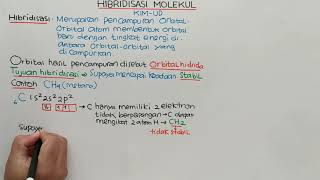 HIBRIDISASI MOLEKUL
KIM-UD
Hibridisasi: Merupakan pencampuran orbital-
orbital atom membentuk orbital
baru dengan tingkat energi di-
antara orbital-orbital yang
di campurkan
Orbital hasil pencampuran disebut Orbital hibrida
Tujuan hibridisasi → Supaya mencapai keadaan Stabil
Contoh CH4 (metana)
6C 1s² 2s² 2p² → C hanya memiliki 2 elektron
tidak berpasangan → C dapat
mengikat 2 atom H → CH2
tidak stabil
Supaya